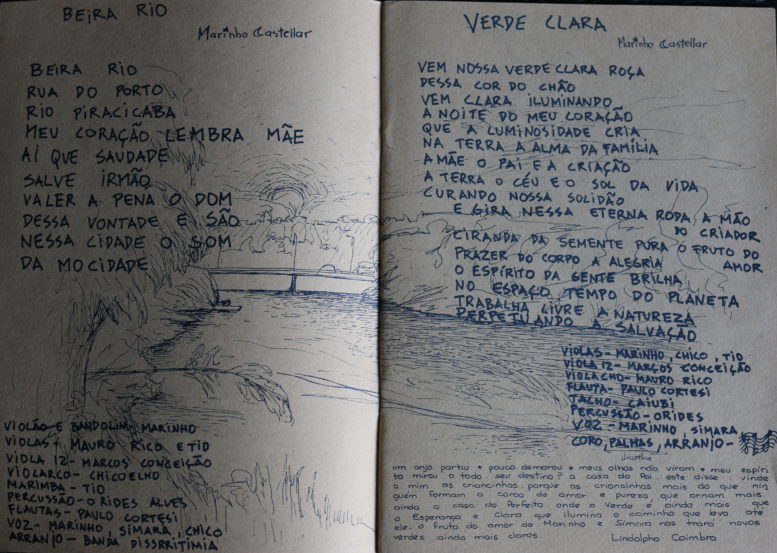 BEIRA RIO
Marinho Castellar
BEIRA RIO
RUA DO PORTO
RIO PIRACICABA
MEU CORAÇÃO LEMBRA MÃE
AÍ QUE SAUDADE
SALVE IRMÃO
VALER A PENA O DOM
DESSA VONTADE E SÃO
NESSA CIDADE O SOM
DA MOCIDADE
VIOLÃO E BANDOLIM MARINHO
VIOLAS - MAURO RICO E TID
VIOLA 12 - MARCOS CONCEIÇÃO
VIOLARCO - CHICOELHO
MARIMBA - TID
PERCUSSÃO - ORIDES ALVES
FLAUTAS - PAULO CORTESI
VOZ - MARINHO, SIMARA, CHICO
ARRANJO - BANDA DISSRRITIMIA
VERDE CLARA
Marinho Castellar
VEM NOSSA VERDE CLARA ROÇA
DESSA COR DO CHÃO
VEM CLARA ILUMINANDO
A NOITE DO MEU CORAÇÃO
QUE A LUMINOSIDADE CRIA
NA TERRA A ALMA DA FAMÍLIA
A MÃE O PAI E A CRIAÇÃO
A TERRA O CÉU E O SOL DA VIDA
CURANDO NOSSA SOLIDÃO
E GIRA NESSA ETERNA RODA A MÃO
DO CRIADOR
CIRANDA DA SEMENTE PURA O FRUTO DO
AMOR
PRAZER DO CORPO A ALEGRIA
O ESPÍRITO DA GENTE BRILHA
NO ESPAÇO TEMPO DO PLANETA
TRABALHA LIVRE A NATUREZA
PERPETUANDO A SALVAÇÃO
VIOLAS - MARINHO, CHICO, TID
VIOLA 12 - MARCOS CONCEIÇÃO
VIOLACHO - MAURO RICO
FLAUTA - PAULO CORTESI
TACHO - CAIUBI
PERCUSSÃO - ORIDES
VOZ - MARINHO, SIMARA
CORO, PALMAS, ARRANJO -
um anjo partiu * pouco demorou * meus olhos não viram * meu espíri
to mirou o todo. seu destino? a casa do Pai. este disse: vinde
a mim as criancinhas. porque as criancinhas mais do que nin
guém formam a coroa de amor e pureza, que ornam mais
ainda a casa do Perfeito onde o Verde é ainda mais que
a Esperança e Clara, que ilumina o caminho que leva até
ele. o fruto do amor de Marinho e Simara nos trará novos
verdes ainda mais claros. Lindolpho Coimbra